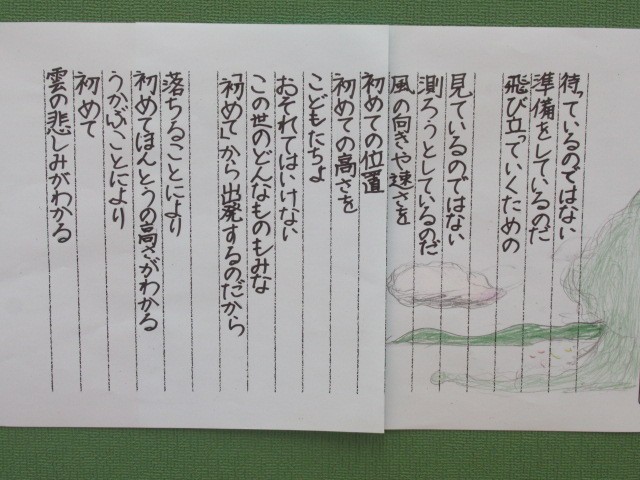 待っているのではない
準備をしているのだ
飛び立っていくための
見ているのではない
測ろうとしているのだ
風の向きや速さを
初めての位置
初めての高さを
こどもたちよ
おそれてはいけない
この世のどんなものもみな
「初めて」から出発するのだから
落ちることにより
初めてほんとうの高さがわかる
うかぶことにより
初めて
雲の悲しみがわかる